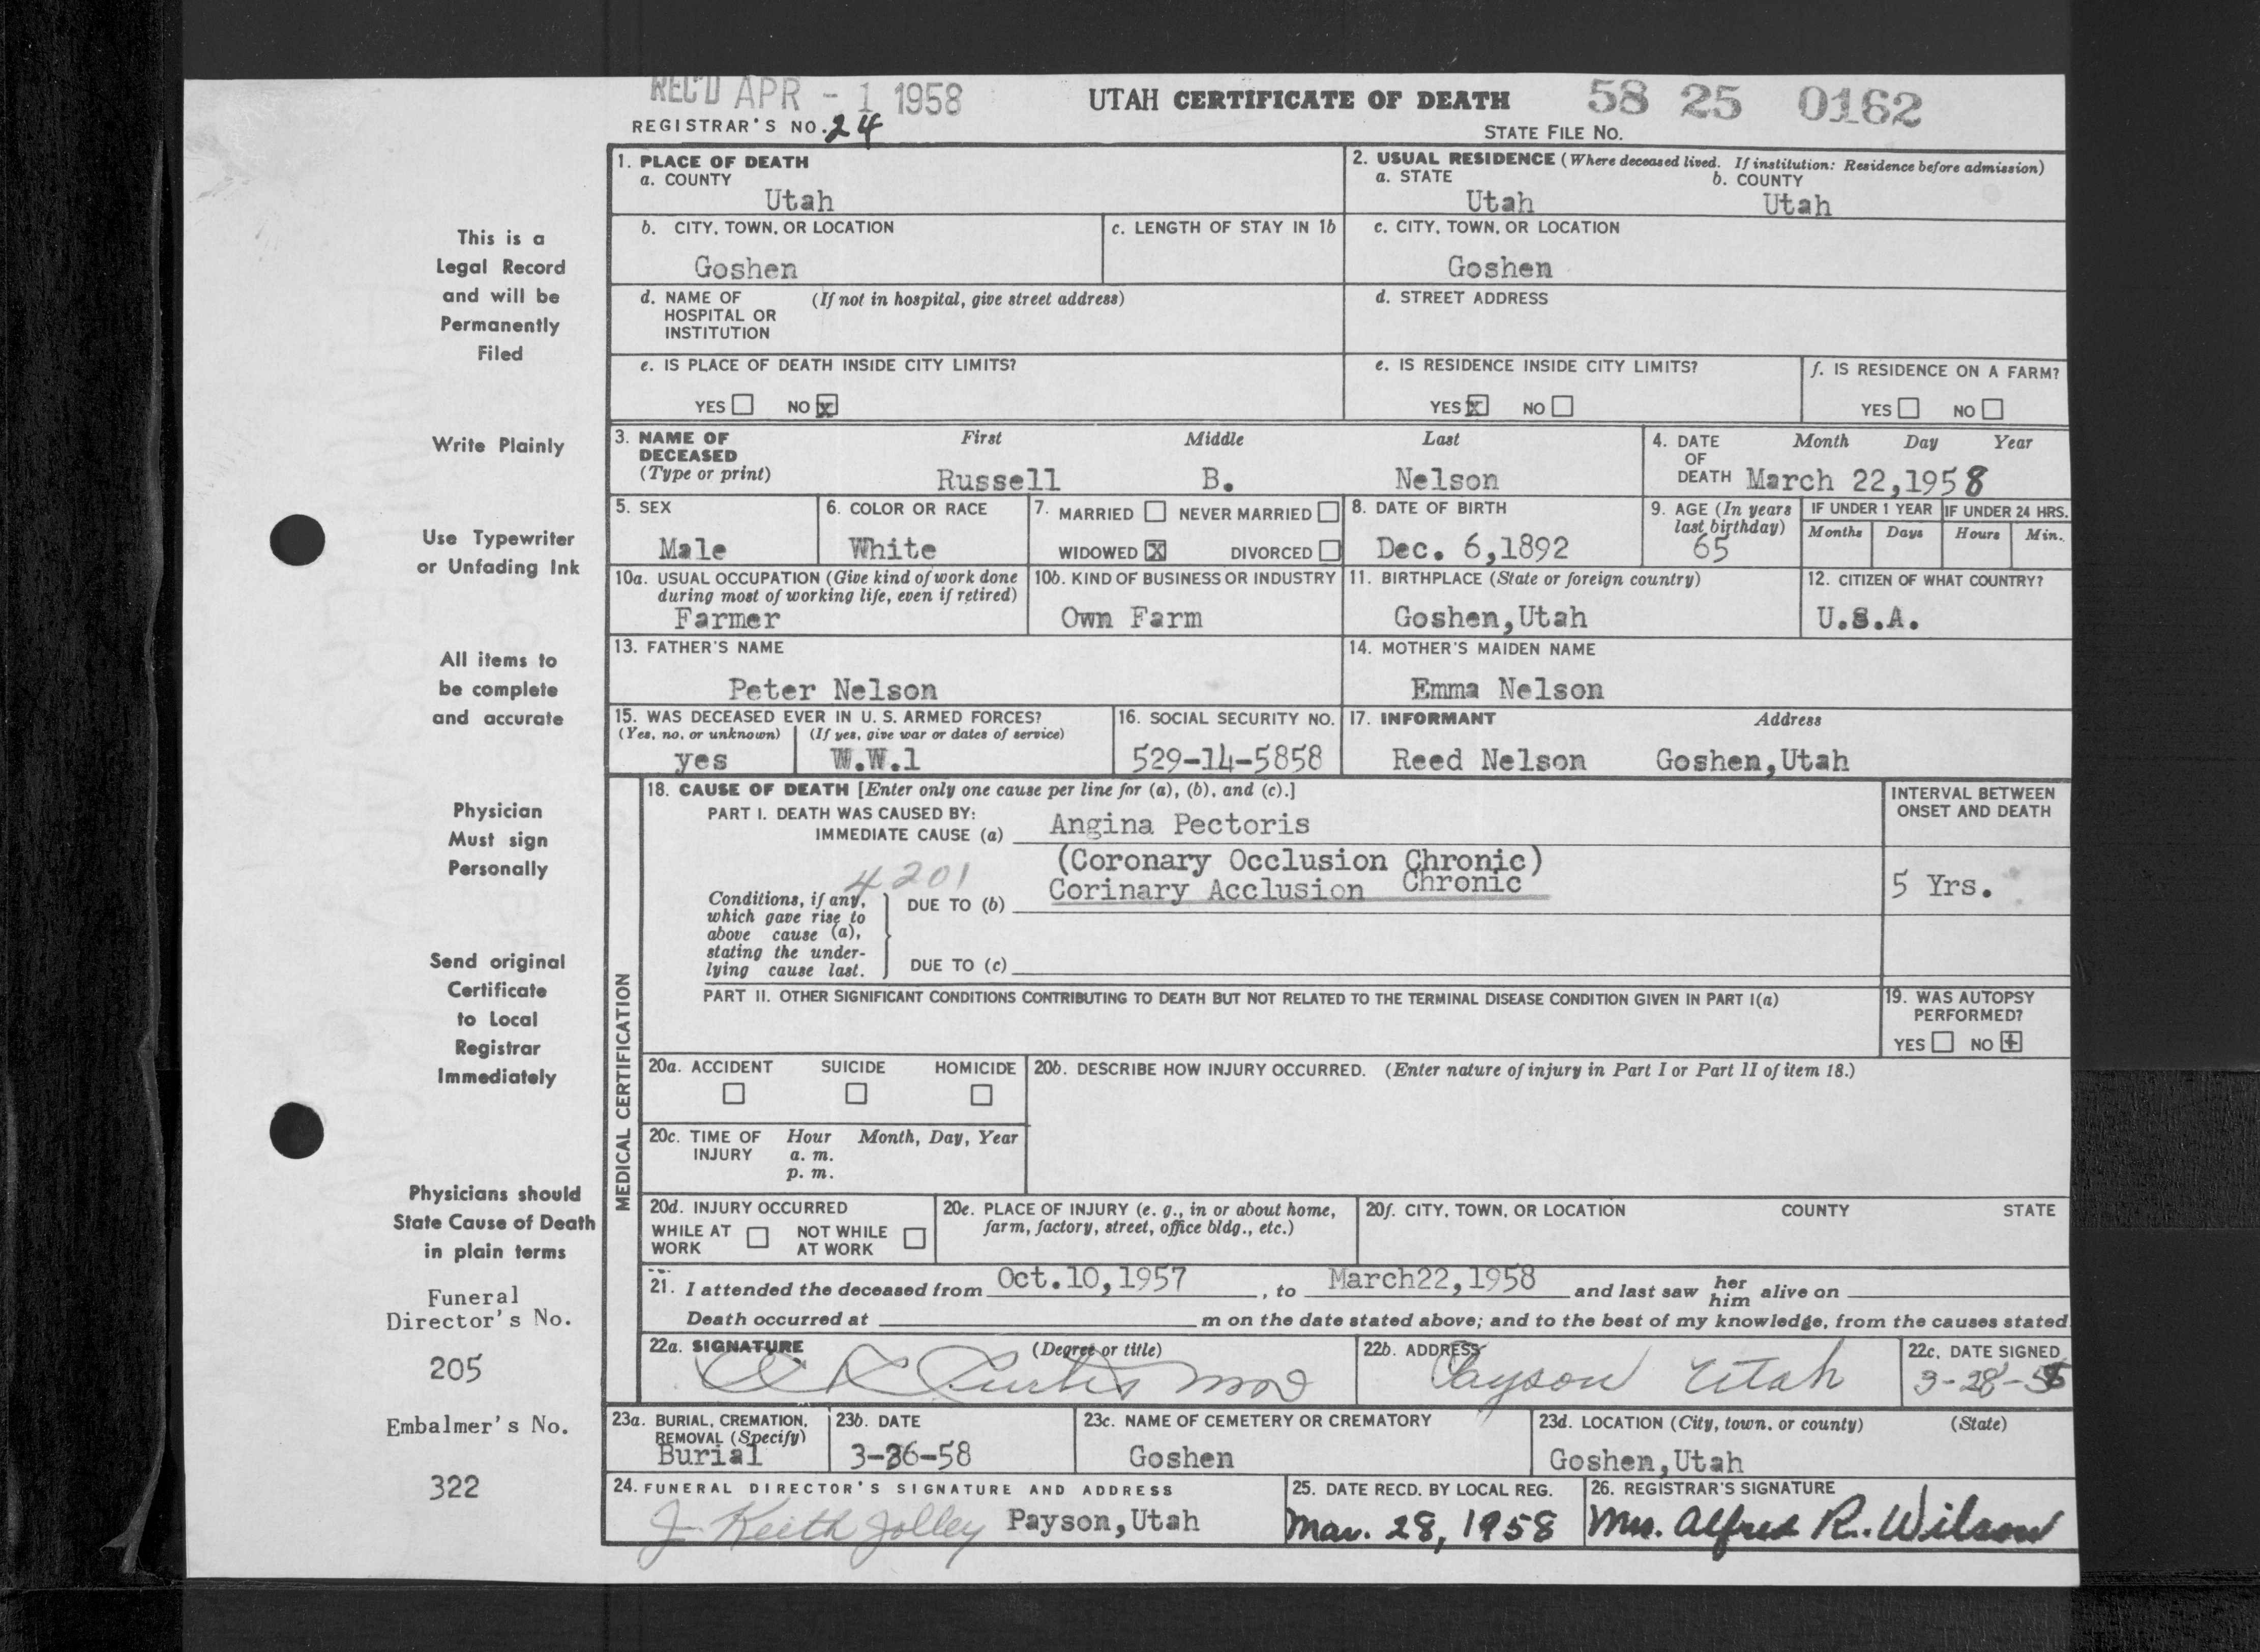 REC'D APR - 1 1958 UTAH CERTIFICATE OF DEATH 58 25 0162
REGISTRAR'S NO. 24 STATE FILE NO.
1. PLACE OF DEATH
a. COUNTY
Utah
2. USUAL RESIDENCE (Where deceased lived. If institution: Residence before admission)
a. STATE b. COUNTY
Utah Utah
b. CITY, TOWN, OR LOCATION
Goshen
c. LENGTH OF STAY IN 1b
c. CITY, TOWN, OR LOCATION
Goshen
d. NAME OF (If not in hospital, give street address)
HOSPITAL OR
INSTITUTION
d. STREET ADDRESS
e. IS PLACE OF DEATH INSIDE CITY LIMITS?
YES NO x
e. IS RESIDENCE INSIDE CITY LIMITS?
YES x NO
f. IS RESIDENCE ON A FARM?
YES NO
3. NAME OF First Middle Last
DECEASED
(Type or print) Russell B. Nelson
4. DATE Month Day Year
OF
DEATH March 22,1958
5. SEX
Male
6. COLOR OR RACE
White
7. MARRIED NEVER MARRIED
WIDOWED X DIVORCED
8. DATE OF BIRTH
Dec. 6,1892
9. AGE (In years
last birthday)
65
IF UNDER 1 YEAR
Months Days
IF UNDER 24 HRS.
Hours Min.
10a. USUAL OCCUPATION (Give kind of work done
during most of working life, even if retired)
Farmer
10b. KIND OF BUSINESS OR INDUSTRY
Own Farm
11. BIRTHPLACE (State or foreign country)
Goshen,Utah
12. CITIZEN OF WHAT COUNTRY?
U.S.A.
13. FATHER'S NAME
Peter Nelson
14. MOTHER'S MAIDEN NAME
Emma Nelson
15. WAS DECEASED EVER IN U. S. ARMED FORCES?
(Yes, no, or unknown) (If yes, give war or dates of service)
yes W.W.1
16. SOCIAL SECURITY NO.
529-14-5858
17. INFORMANT Address
Reed Nelson Goshen,Utah
MEDICAL CERTIFICATION
18. CAUSE OF DEATH [Enter only one cause per line for (a), (b), and (c).]
PART I. DEATH WAS CAUSED BY:
IMMEDIATE CAUSE (a) Angina Pectoris
(Coronary Occlusion Chronic)
4201
Conditions, if any,
which gave rise to
above cause (a),
stating the under-
lying cause last.
DUE TO (b) Corinary Acclusion Chronic
DUE TO (c)
INTERVAL BETWEEN
ONSET AND DEATH
5 Yrs.
PART II. OTHER SIGNIFICANT CONDITIONS CONTRIBUTING TO DEATH BUT NOT RELATED TO THE TERMINAL DISEASE CONDITION GIVEN IN PART I(a)
19. WAS AUTOPSY
PERFORMED?
YES NO +
20a. ACCIDENT SUICIDE HOMICIDE
20b. DESCRIBE HOW INJURY OCCURRED. (Enter nature of injury in Part I or Part II of item 18.)
20c. TIME OF Hour Month, Day, Year
INJURY a. m.
p. m.
20d. INJURY OCCURRED
WHILE AT NOT WHILE
WORK AT WORK
20e. PLACE OF INJURY (e. g., in or about home,
farm, factory, street, office bldg., etc.)
20f. CITY, TOWN, OR LOCATION COUNTY STATE
21. I attended the deceased from Oct.10,1957 , to March22,1958 and last saw her him alive on
Death occurred at m on the date stated above; and to the best of my knowledge, from the causes stated
22a. SIGNATURE (Degree or title)
Curtis MD
22b. ADDRESS
Payson Utah
22c. DATE SIGNED
3-28-58
23a. BURIAL, CREMATION,
REMOVAL (Specify)
Burial
23b. DATE
3-26-58
23c. NAME OF CEMETERY OR CREMATORY
Goshen
23d. LOCATION (City, town, or county) (State)
Goshen,Utah
24. FUNERAL DIRECTOR'S SIGNATURE AND ADDRESS
J. Keith Jolley Payson,Utah
25. DATE RECD. BY LOCAL REG.
Mar. 28, 1958
26. REGISTRAR'S SIGNATURE
Mrs. Alfred R. Wilson
This is a
Legal Record
and will be
Permanently
Filed
Write Plainly
Use Typewriter
or Unfading Ink
All items to
be complete
and accurate
Physician
Must sign
Personally
Send original
Certificate
to Local
Registrar
Immediately
Physicians should
State Cause of Death
in plain terms
Funeral
Director's No.
205
Embalmer's No.
322